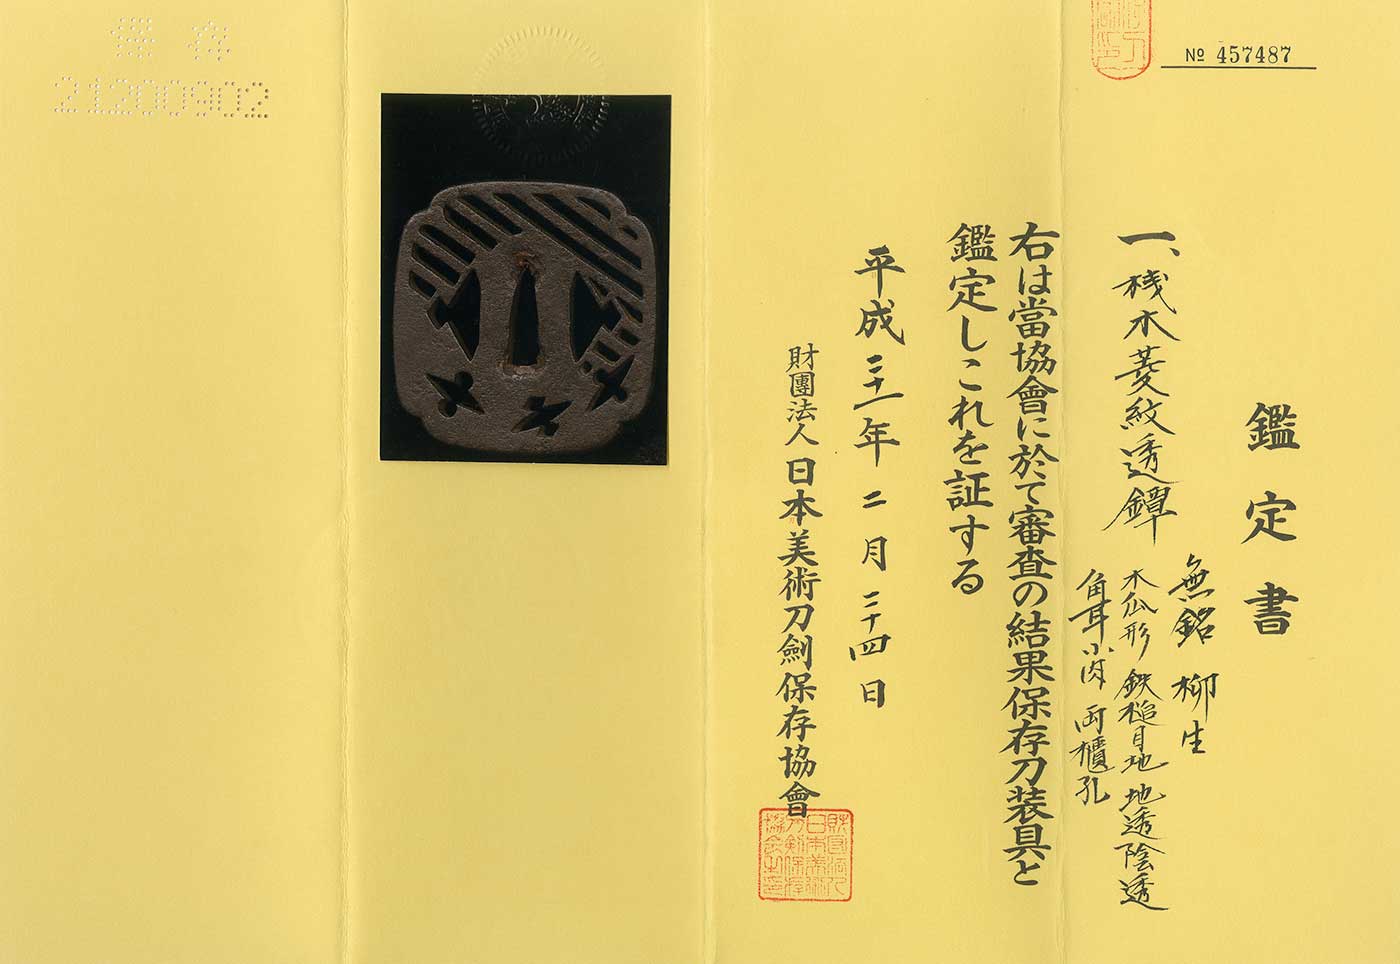 № 457487
鑑定書
一、桟木菱紋透鐔
無銘 柳生
木瓜形 鉄槌目地 地透陰透
角耳小肉 両櫃孔
右は當協會に於て審査の結果保存刀装具と
鑑定しこれを証する
平成二十一年二月二十四日
財團法人日本美術刀劍保存協會
保存
21200902